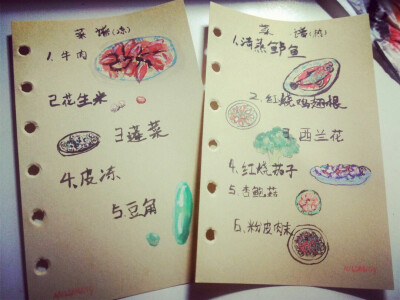 菜谱(凉)
1.牛肉
2.花生米
3蓬菜
4.皮冻
5豆角
菜谱(热)
1.清蒸鲈鱼
2.红烧鸡翅根
3.西兰花
4.红烧茄子
5.杏鲍菇
6.粉皮肉末